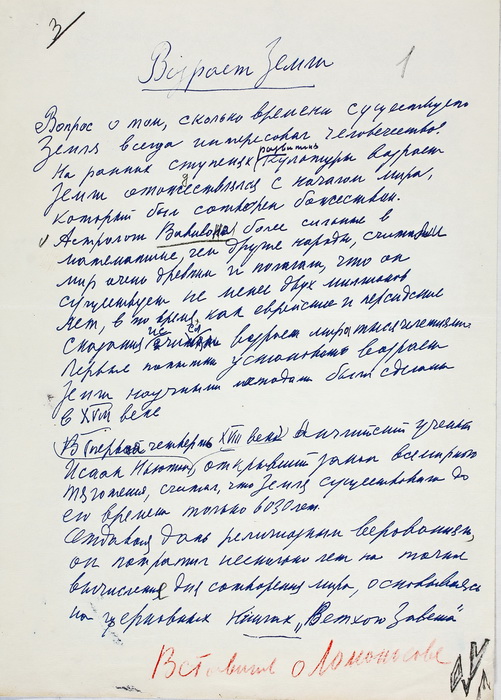 3
1
Возраст Земли
Вопрос о том, сколько времени существует
Земля всегда интересовал человечество.
На ранних ступенях развития культуры возраст
Земли отождествлялся с начатом мира,
который был сотворен божеством.
Астрологи Вавилона более сильные в
математике, чем другие народы, считали
мир очень древним и полагали, что он
существует не менее двух миллионов
лет, в то время как еврейские и персидские
сказания возраст мира тысячелетиями.
Первые попытки установить возраст
Земли научными методами были сделаны
в XVIII веке
В первой четверти XVIII века английский ученый
Исаак Ньютон, открывший закон всемирного
тяготения, считал, что Земля существовала до
его времени только 6030 лет.
Отдавая дань религиозным верованиям,
он потратил несколько лет на точные
вычисления дня сотворения мира, основываясь
на церковных книгах „Ветхого Завета"
Вставить о Ломоносове